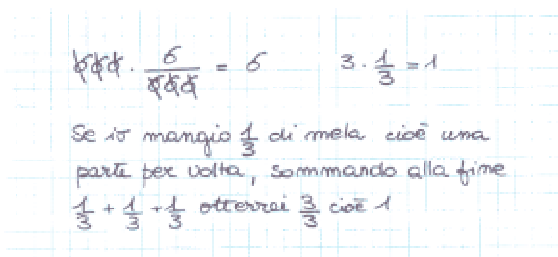 666 · 6/666 = 6 3 · 1/3 = 1
Se io mangio 1/3 di mela cioè una
parte per volta, sommando alla fine
1/3 + 1/3 + 1/3 otterrei 3/3 cioè 1